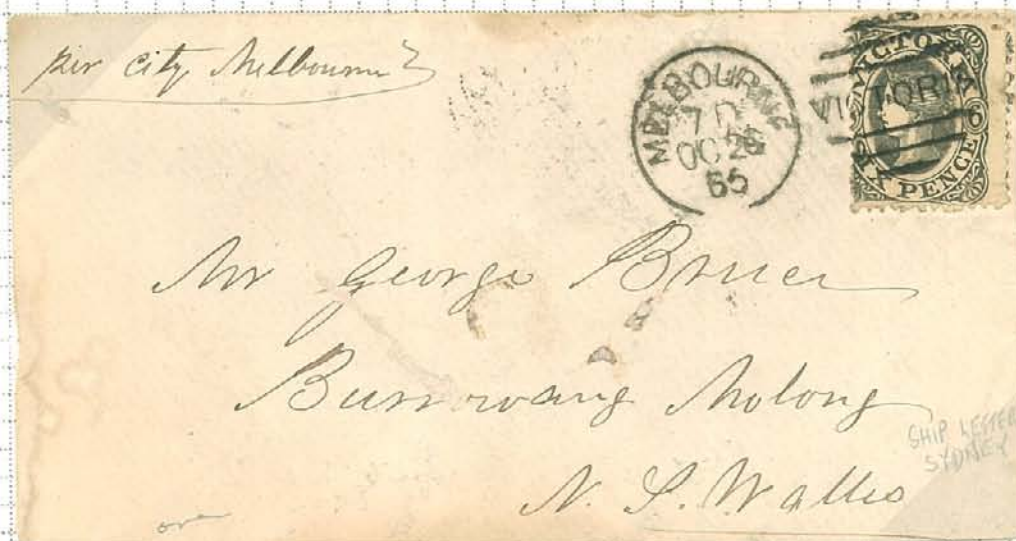 per City Melbourne
MELBOURNE
7 D
OC 26
65
VICTORIA
VICTORIA
6
SIX PENCE
Mr George Bruce
Burrowang Molong
N. S. Wallis
SHIP LETTER
SYDNEY